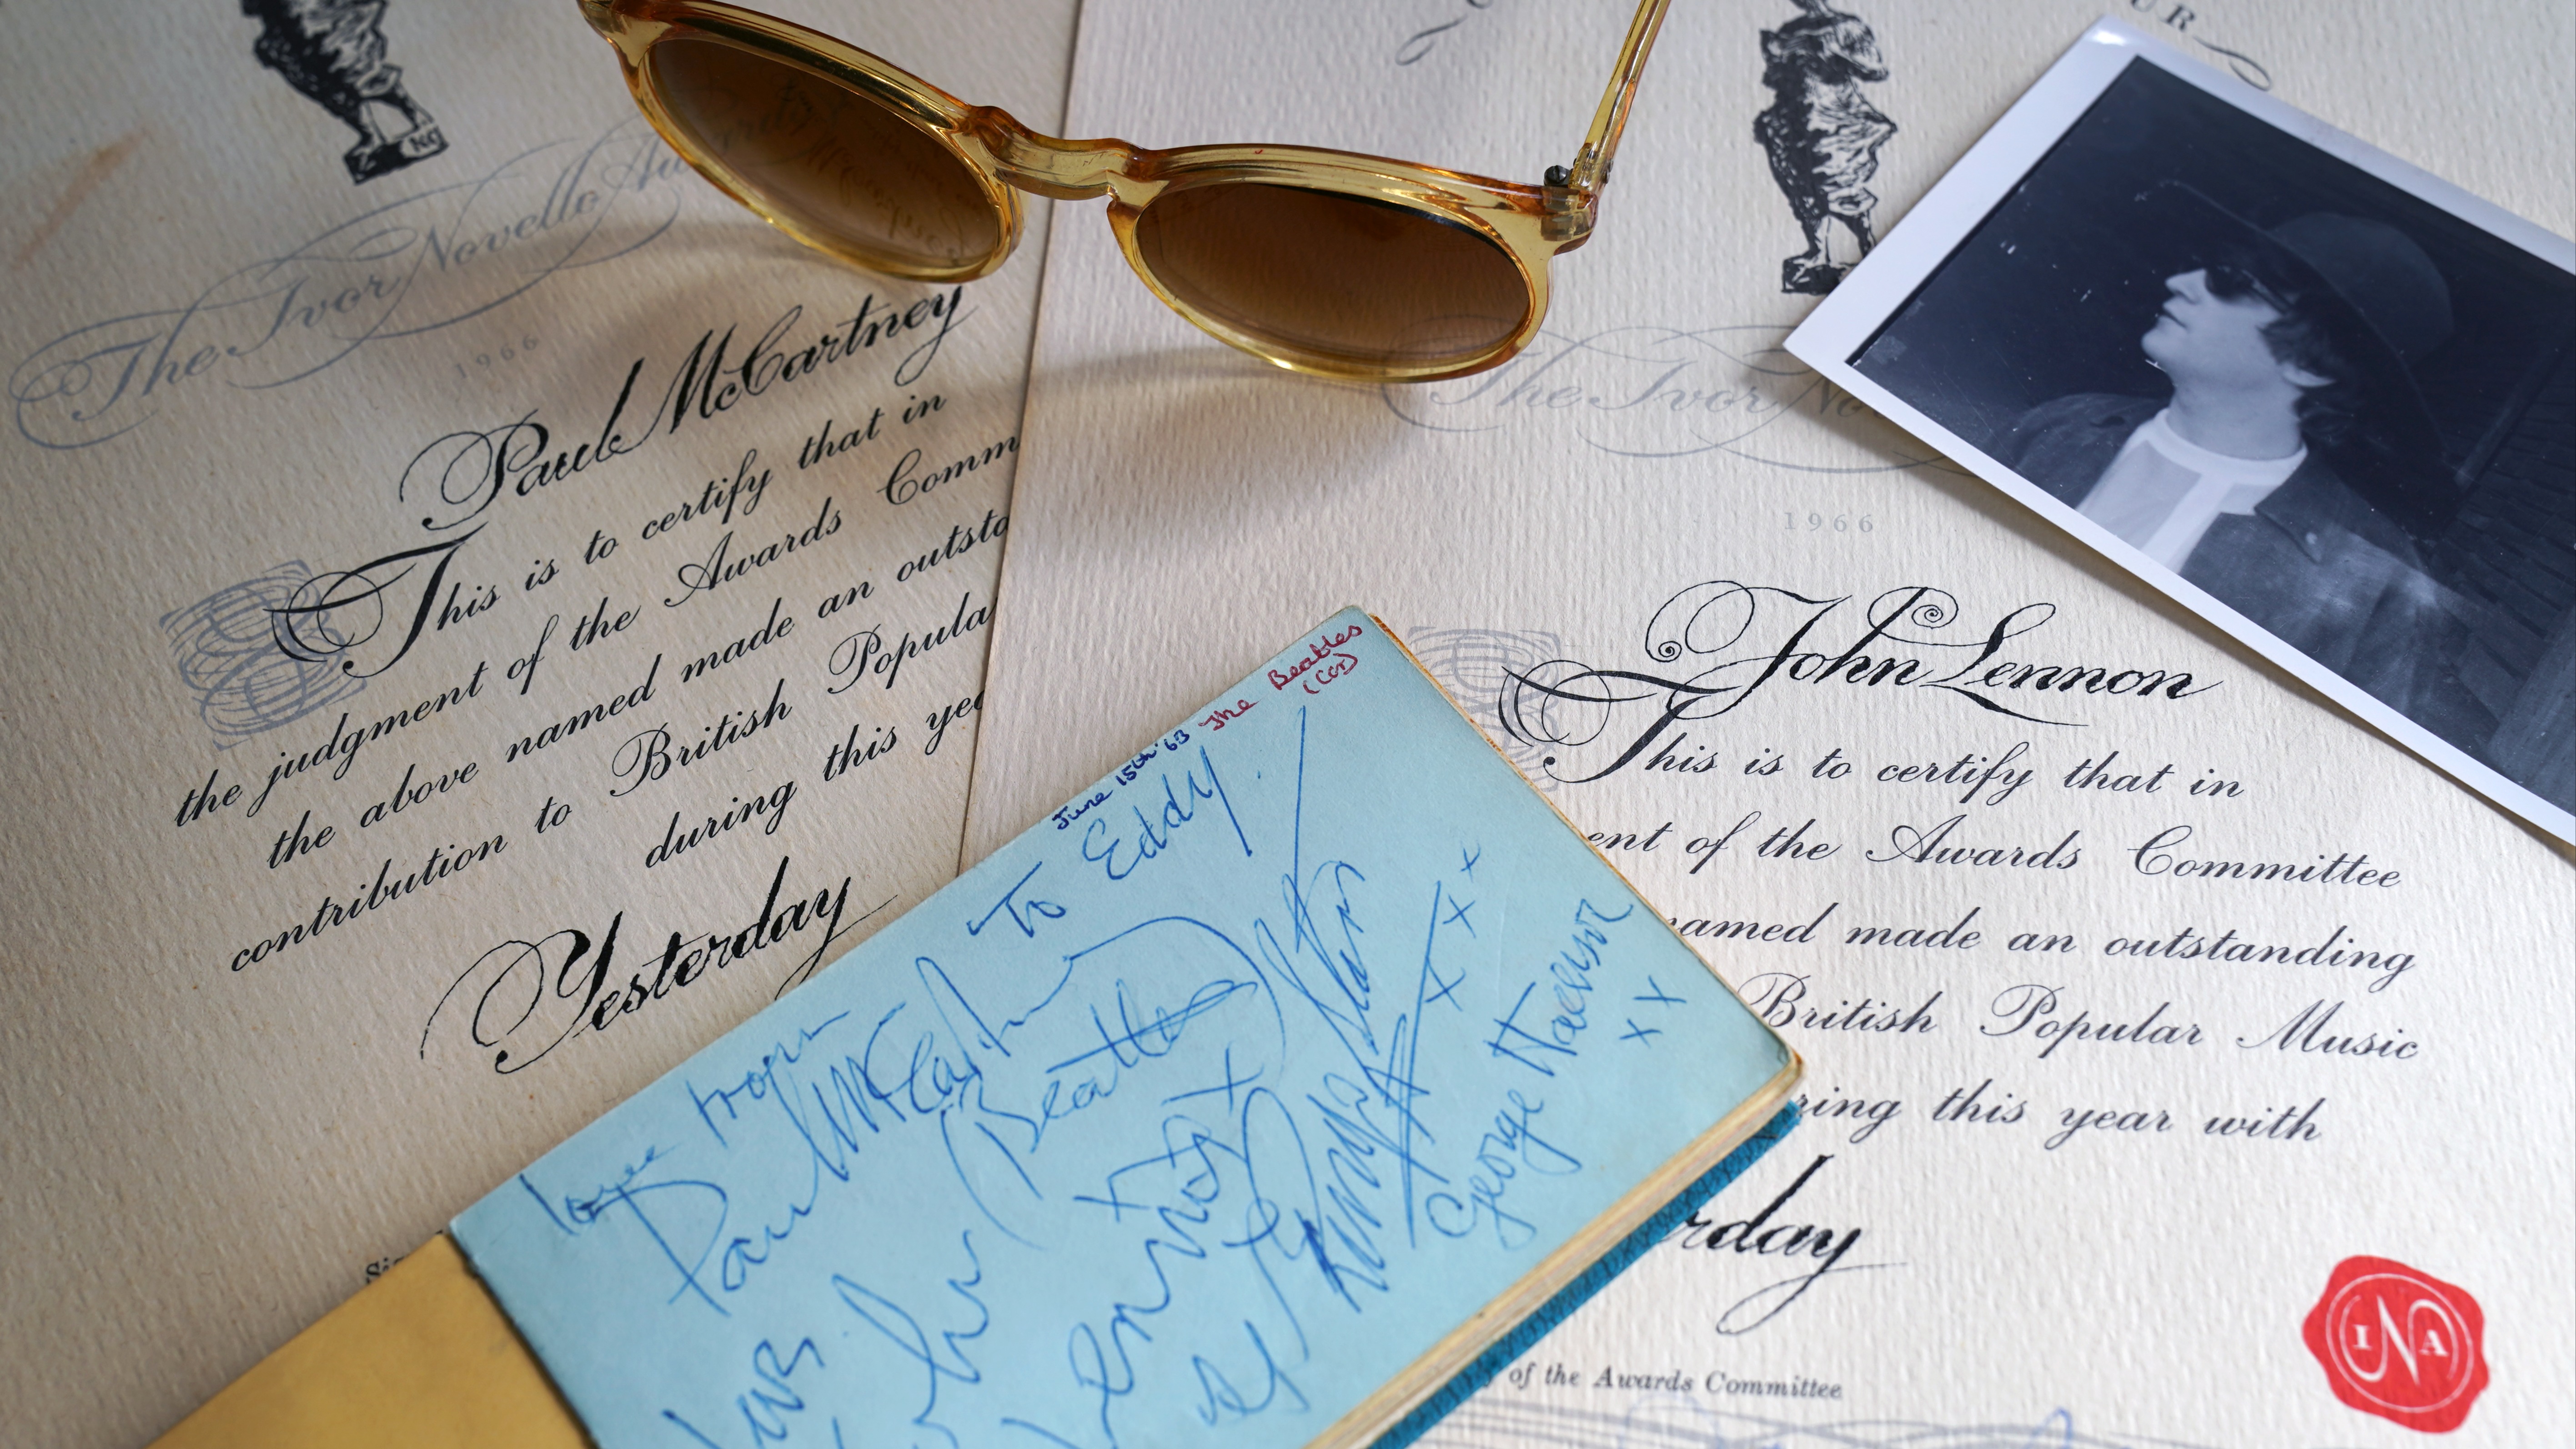 The Ivor Novello
1966
Paul McCartney
This is to certify that in
the judgment of the Awards Comm
the above named made an outsta
contribution to British Popula
during this yea
Yesterday
UR
The Ivor No
1966
John Lennon
This is to certify that in
ent of the Awards Committee
named made an outstanding
British Popular Music
ring this year with
rday
of the Awards Committee
INA
June 15th '63 The Beatles
To Eddy
love from
Paul McCartney
(Beatle)
love
John
Lennon
xxx
Ringo Starr
xxx
George Harrison
xx